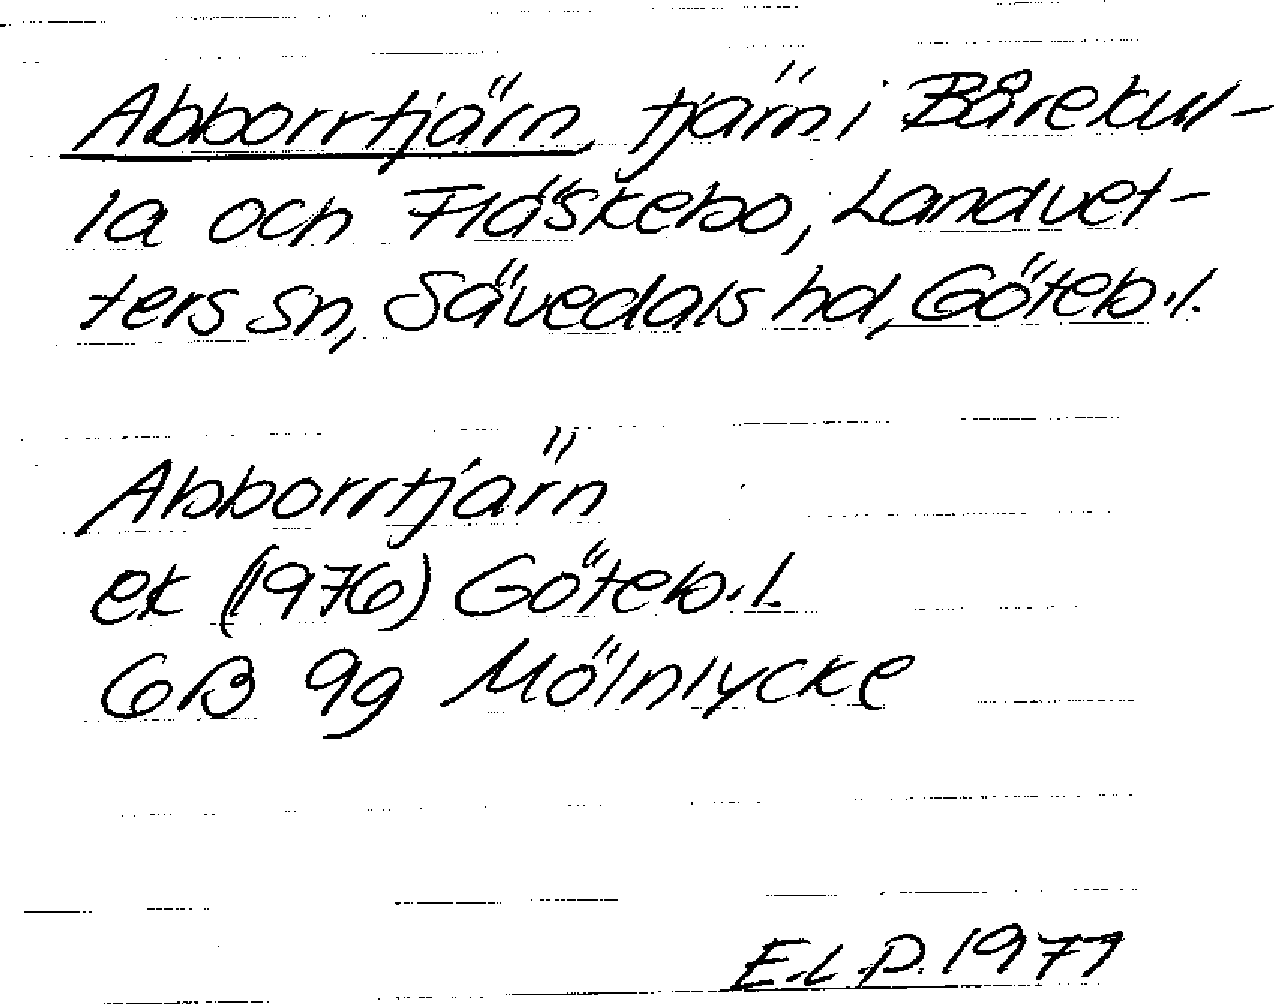 Abborrtjärn, tjärn i Bårekul-
la och Fläskebo, Landvet-
ters sn, Sävedals hd, Göteb.l.
Abborrtjärn
ek (1976) Göteb.l.
6B 9g Mölnlycke
E.L.P. 1977